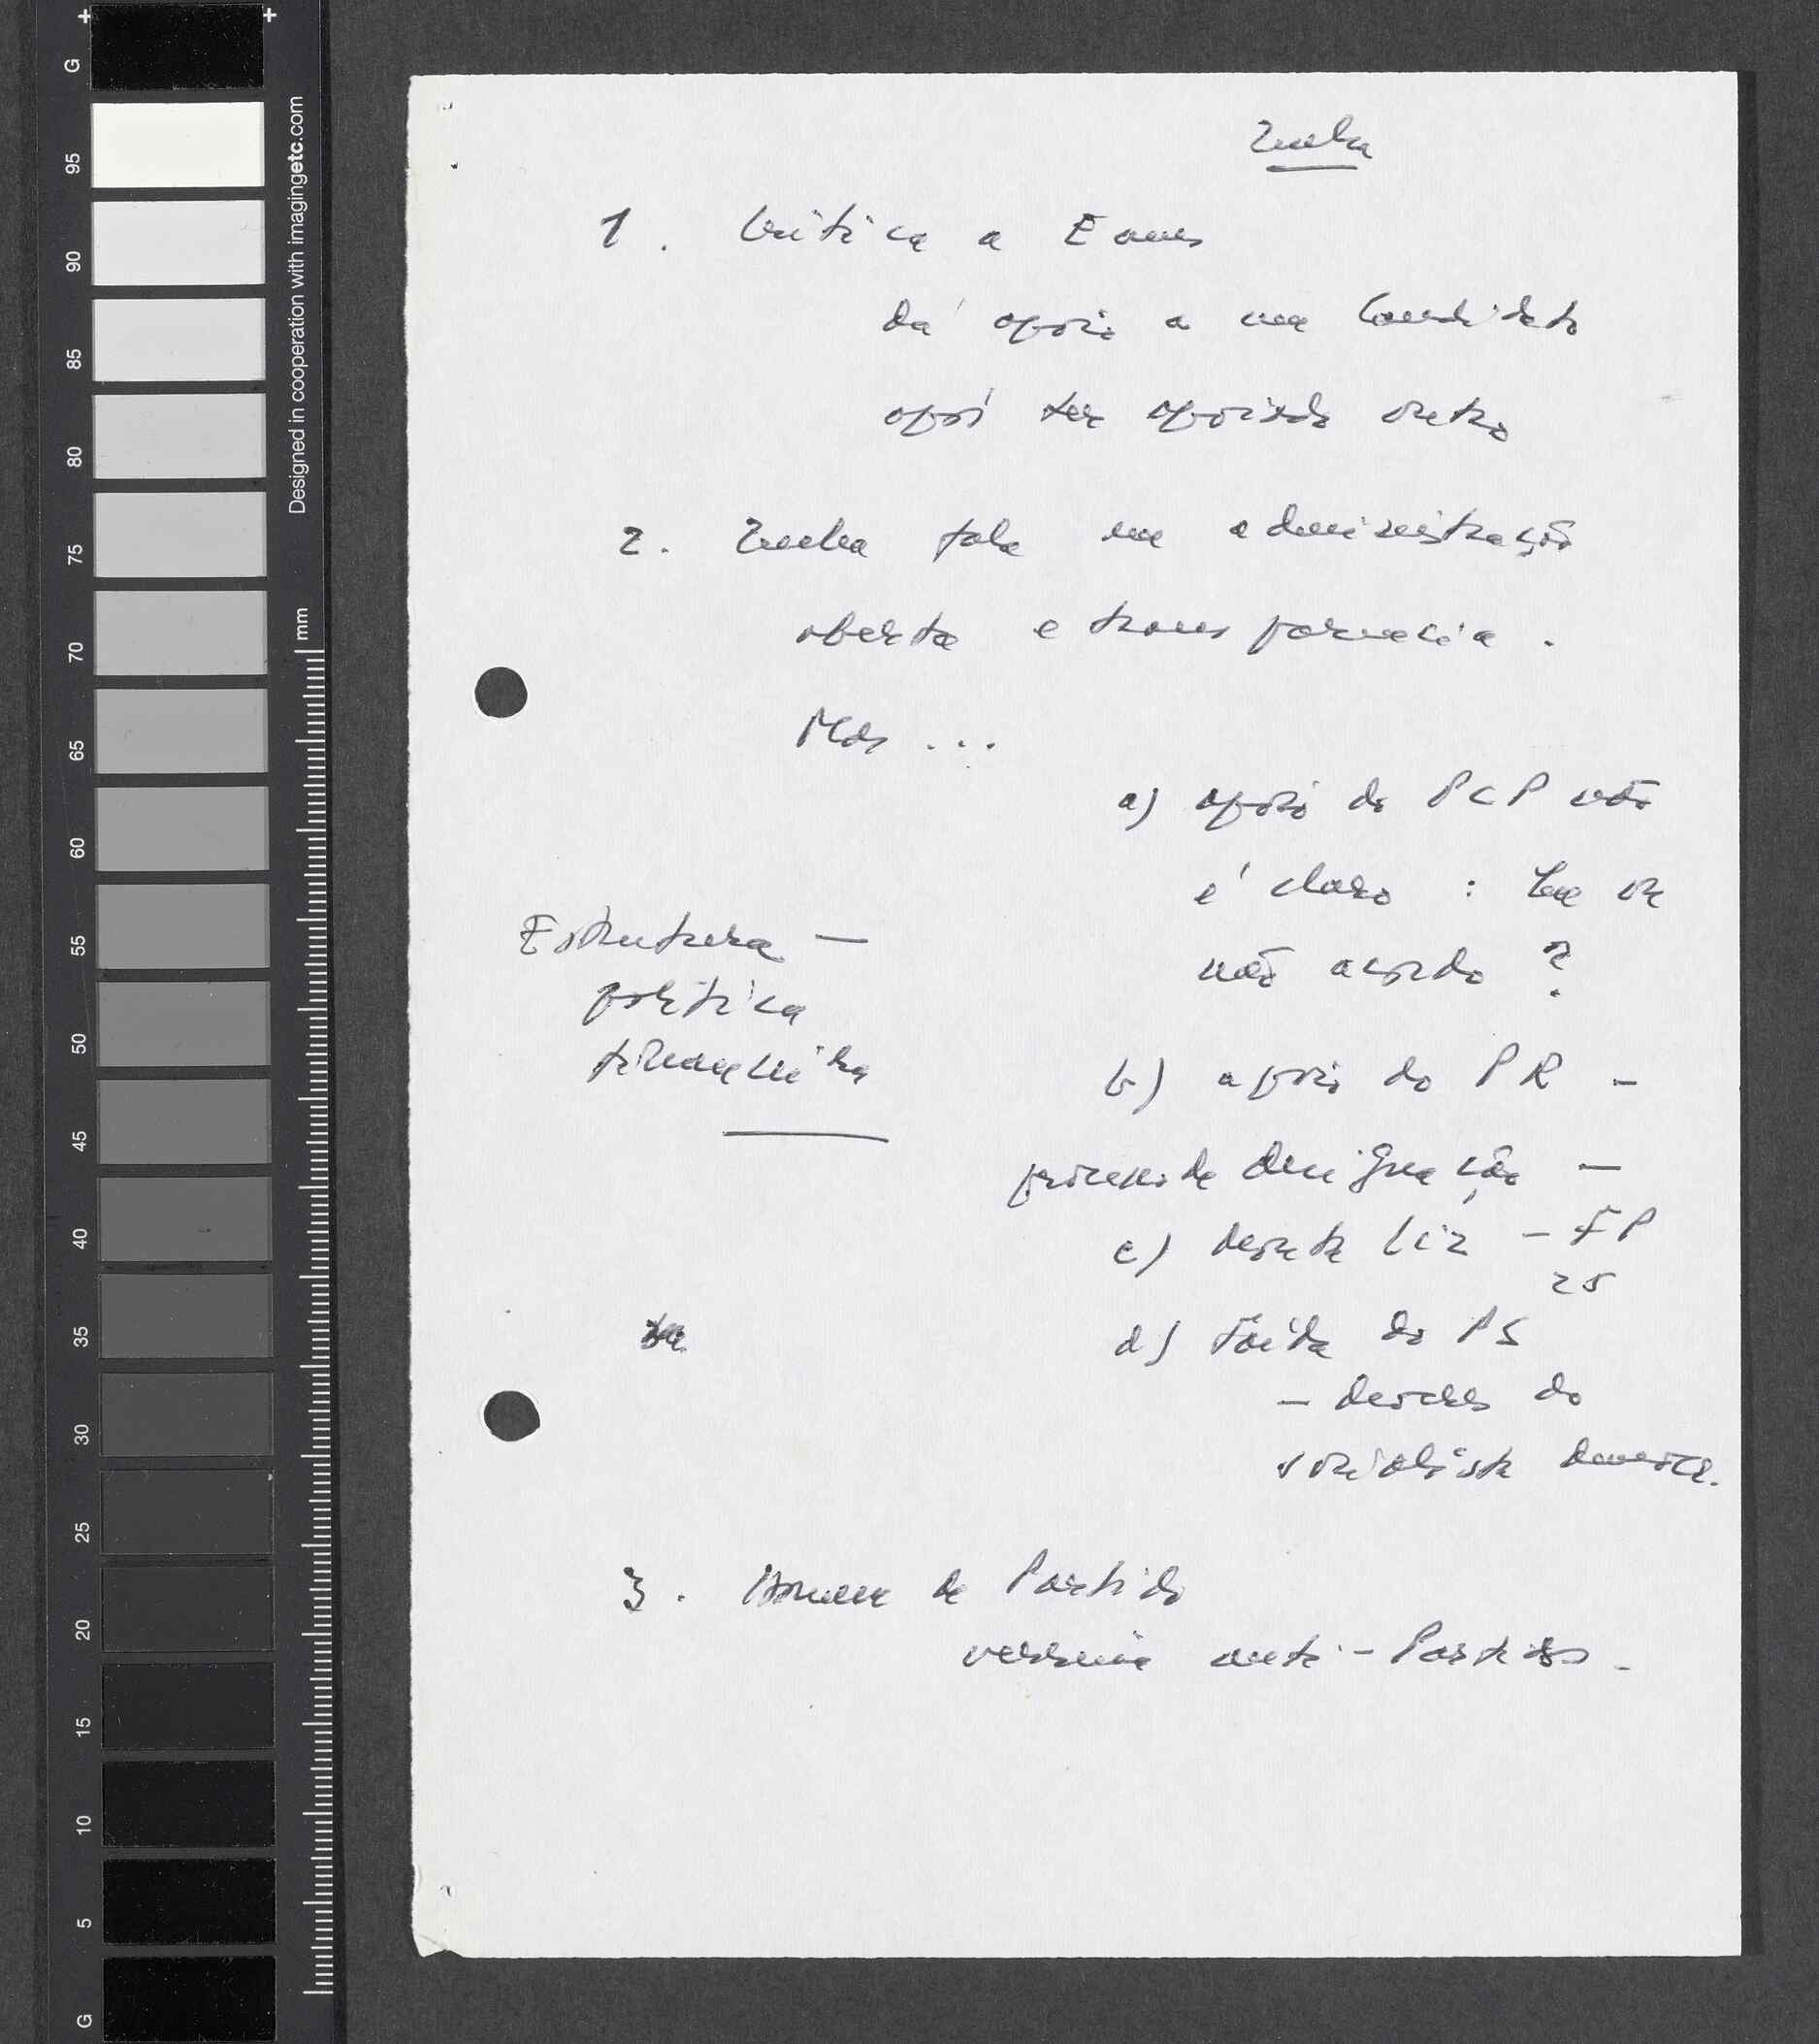 G
95
90
85
80
75
70
65
60
55
50
45
40
35
30
25
20
15
10
5
G
Designed in cooperation with imagingetc.com
mm
Zenha
1. Crítica a Eanes
dá apoio a um Candidato
após ter apoiado outro
2. Zenha fala em administração
aberta e transparência.
Mas ...
a) apoio do PCP não
é claro : tem ou
não acordo ?
Estrutura —
política
b) apoio do PR —
processo de designação —
c) - FP
25
d) Saída do PS
—
socialista
3. Homem de Partido
anti-Partidos.